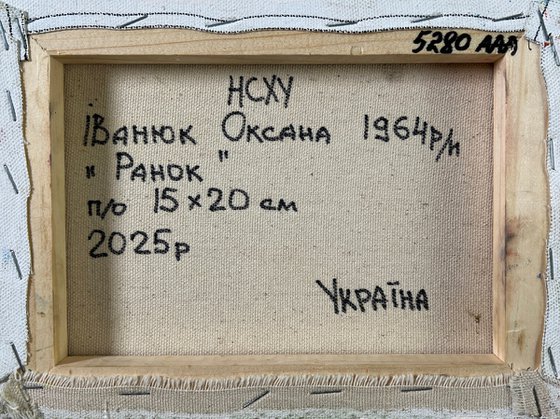 5280 ААЛ
НСХУ
Іванюк Оксана 1964р/н
"Ранок"
п/о 15×20 см
2025р
Україна